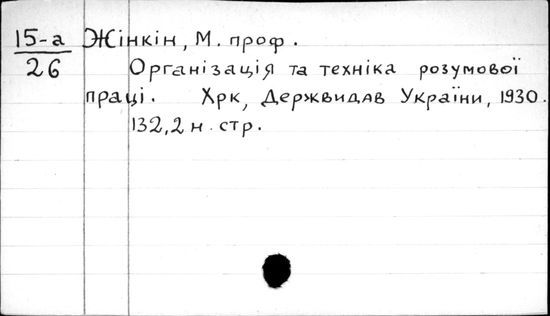 15-а Жінкін, М. проф.
26 Організація та техніка розумової
праці. Хрк, Держвидав України, 1930.
132,2 н. стр.